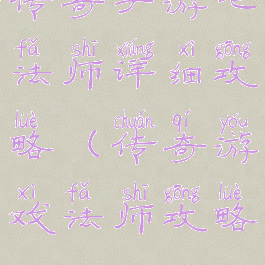 传奇 游
fǎ shī xiáng xì gōng
法师详细攻
lüè chuán qí yóu
略（传奇游
xì fǎ shī gōng lüè
戏法师攻略